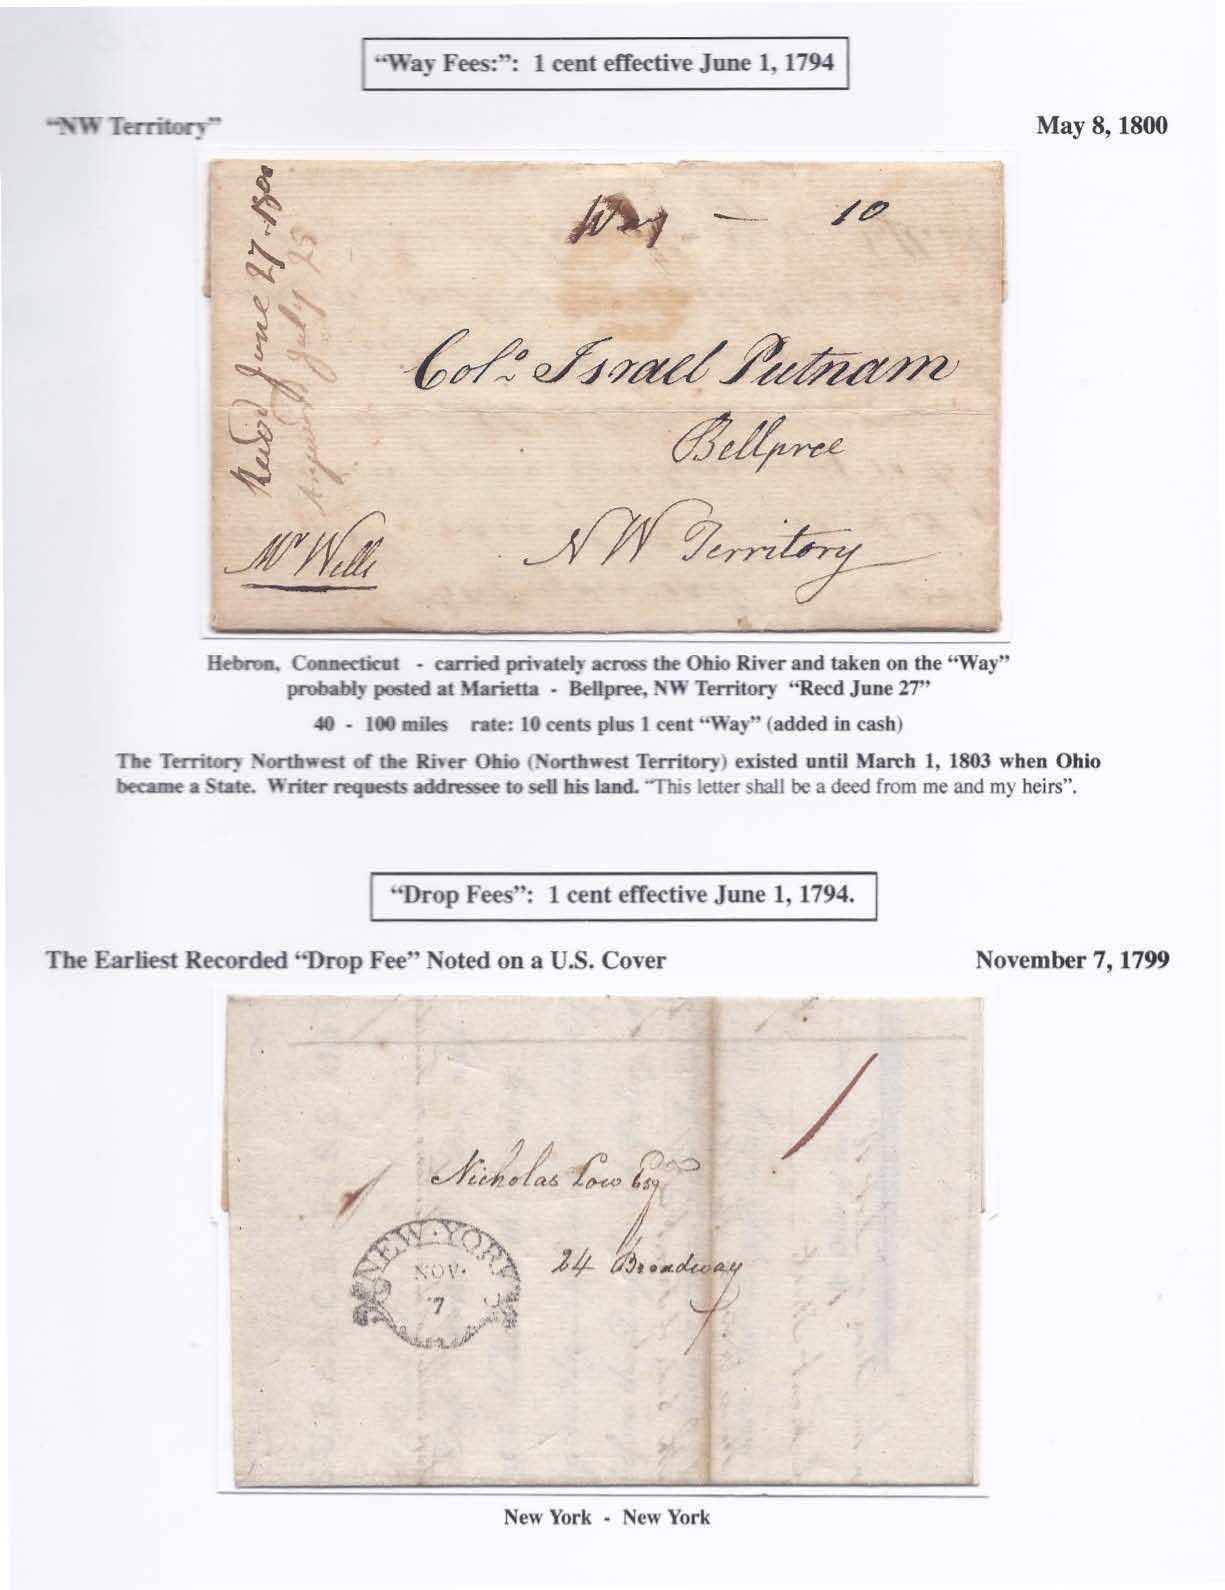 “Way Fees:”: 1 cent effective June 1, 1794
“NW Territory” May 8, 1800
Way — 10
Recd June 27 - 1800
July 23
Colo Israel Putnam
Bellpree
Mr Wells
NW Territory
Hebron, Connecticut - carried privately across the Ohio River and taken on the “Way”
probably posted at Marietta - Bellpree, NW Territory “Recd June 27”
40 - 100 miles rate: 10 cents plus 1 cent “Way” (added in cash)
The Territory Northwest of the River Ohio (Northwest Territory) existed until March 1, 1803 when Ohio
became a State. Writer requests addressee to sell his land. “This letter shall be a deed from me and my heirs”.
“Drop Fees”: 1 cent effective June 1, 1794.
The Earliest Recorded “Drop Fee” Noted on a U.S. Cover November 7, 1799
1
Nicholas Low Esqr
NEW·YORK
NOV·
7
24 Broadway
New York - New York